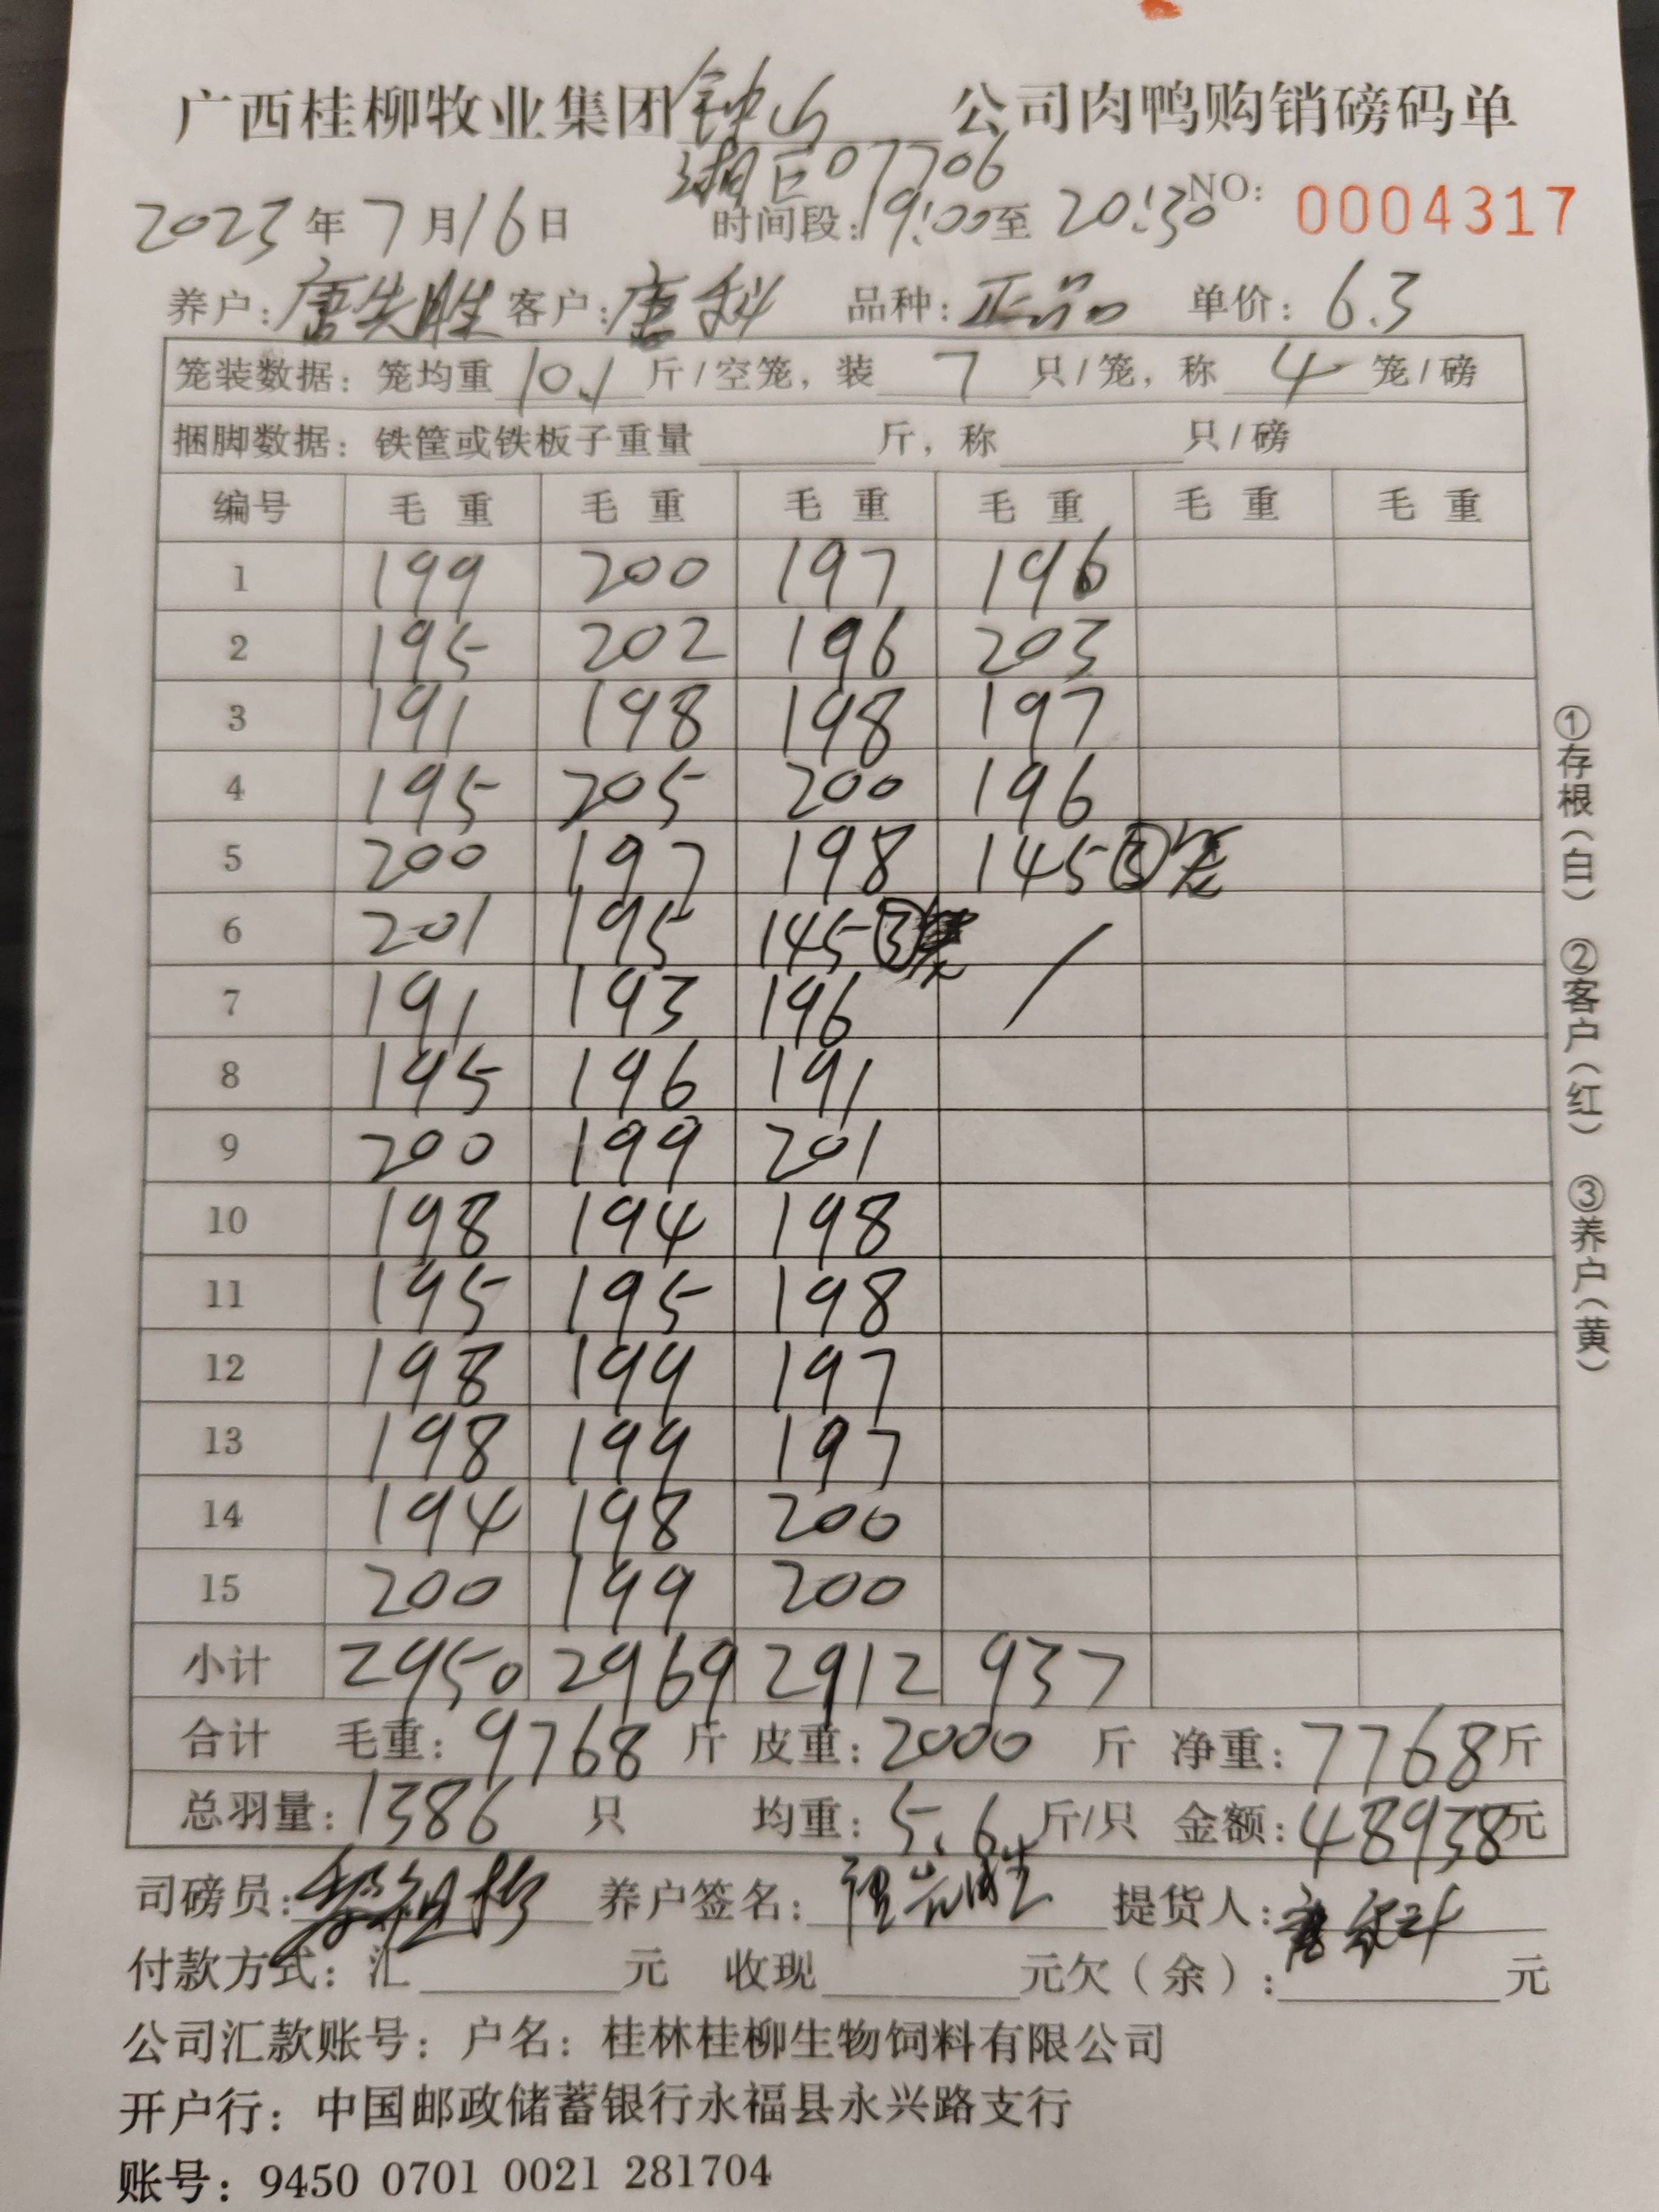 广西桂柳牧业集团钟山公司肉鸭购销磅码单
湘E07706
2023年7月16日 时间段:19:00至20:30 NO: 0004317
养户:唐先胜 客户:唐科 品种:正品 单价:6.3
笼装数据:笼均重10.1斤/空笼,装7只/笼,称4笼/磅
捆脚数据:铁筐或铁板子重量 斤,称 只/磅
编号 毛重 毛重 毛重 毛重 毛重 毛重
1 199 200 197 196
2 195 202 196 203
3 191 198 198 197
4 195 205 200 196
5 200 197 198 145③笼
6 201 195 145③笼
7 191 193 196
8 195 196 191
9 200 199 201
10 198 194 198
11 195 195 198
12 198 199 197
13 198 199 197
14 194 198 200
15 200 199 200
小计 2950 2969 2912 937
合计 毛重:9768斤 皮重:2000斤 净重:7768斤
总羽量:1386只 均重:5.6斤/只 金额:48938元
司磅员: 养户签名: 提货人:
付款方式:汇 元 收现 元欠(余): 元
公司汇款账号:户名:桂林桂柳生物饲料有限公司
开户行:中国邮政储蓄银行永福县永兴路支行
账号:9450 0701 0021 281704
①存根(白) ②客户(红) ③养户(黄)